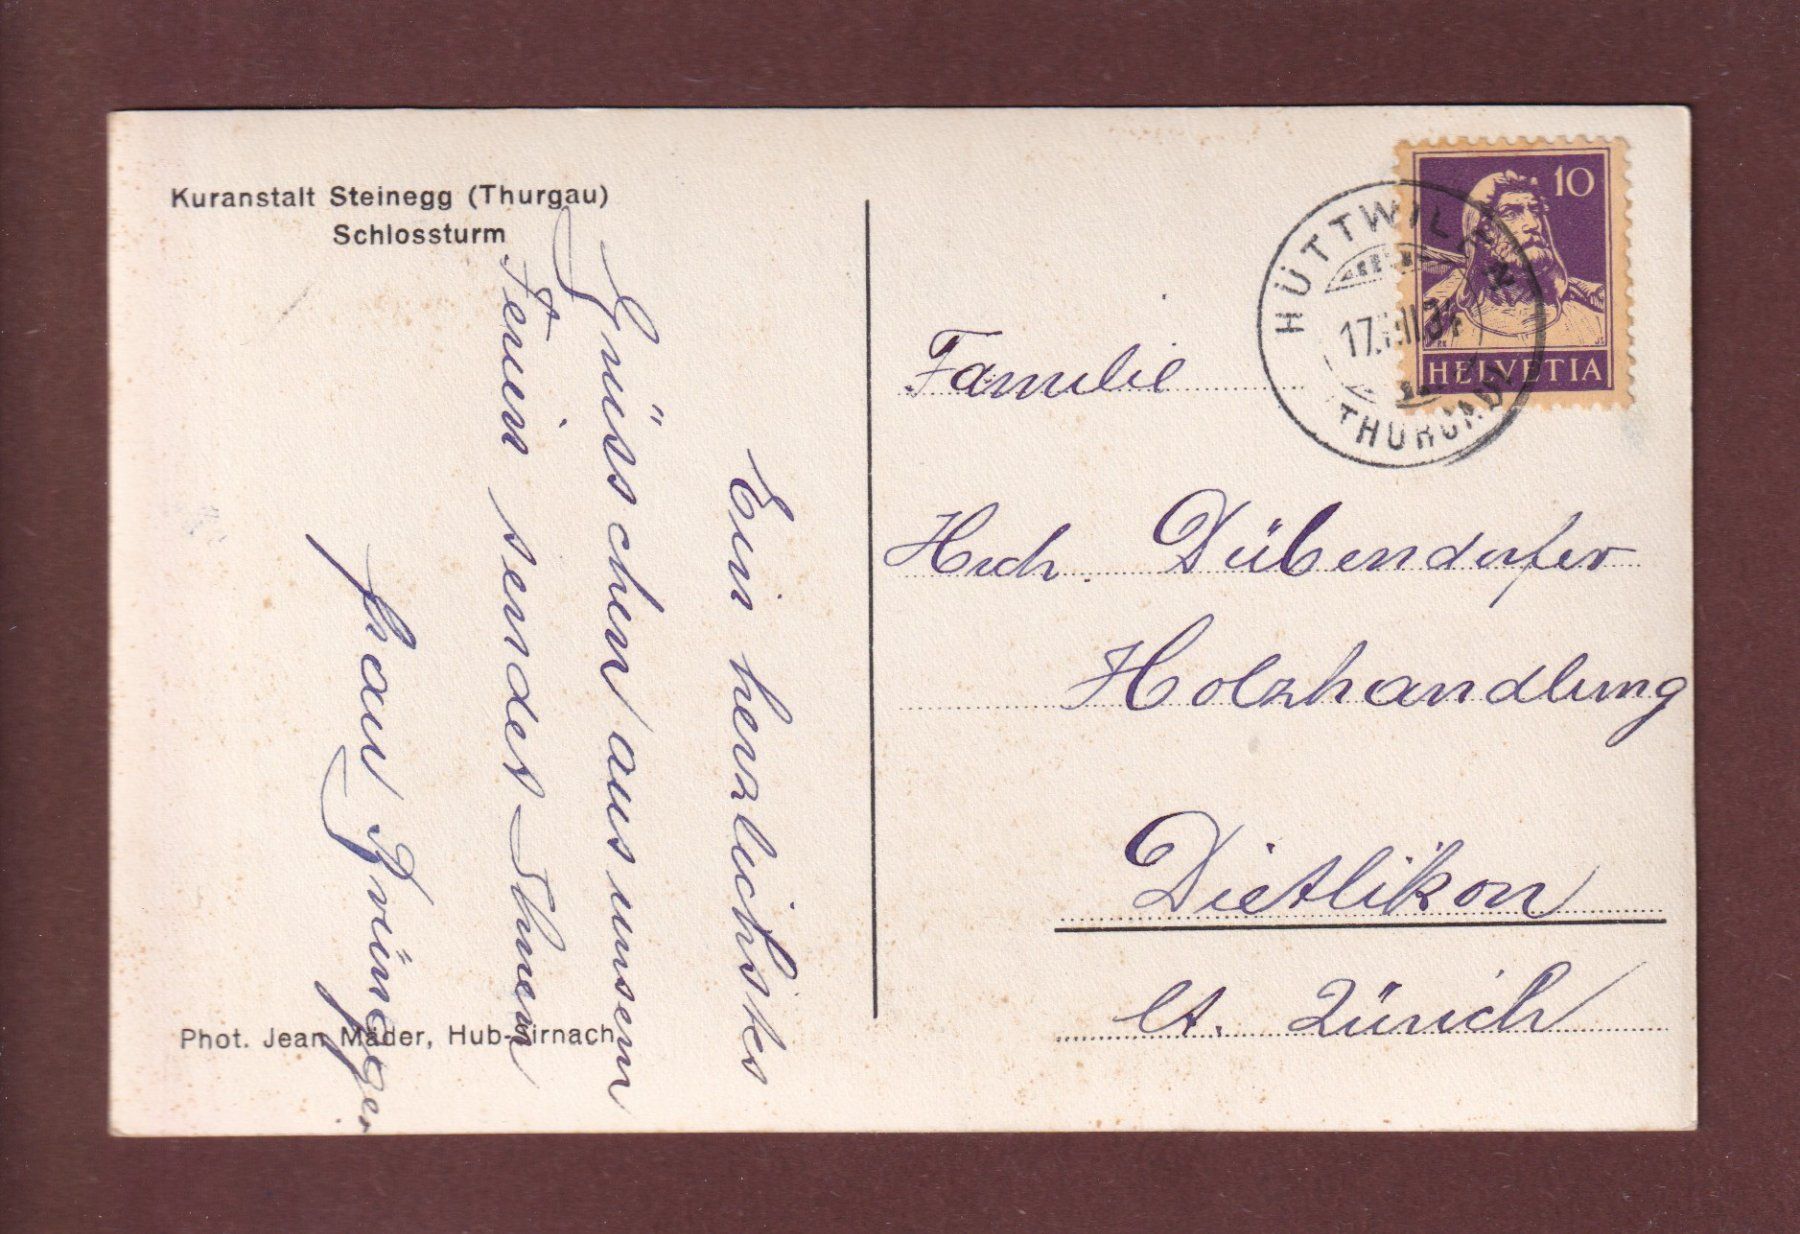 Kuranstalt Steinegg (Thurgau)
Schlossturm
Ein herzlichstes
Grüsschen aus unsern
Ferien sendet Ihnen
Frau
Phot. Jean Mäder, Hub-Sirnach
10
HELVETIA
HÜTTWILEN
(THURGAU)
Familie
Hch. Dübendorfer
Holzhandlung
Dietlikon
Ct. Zürich